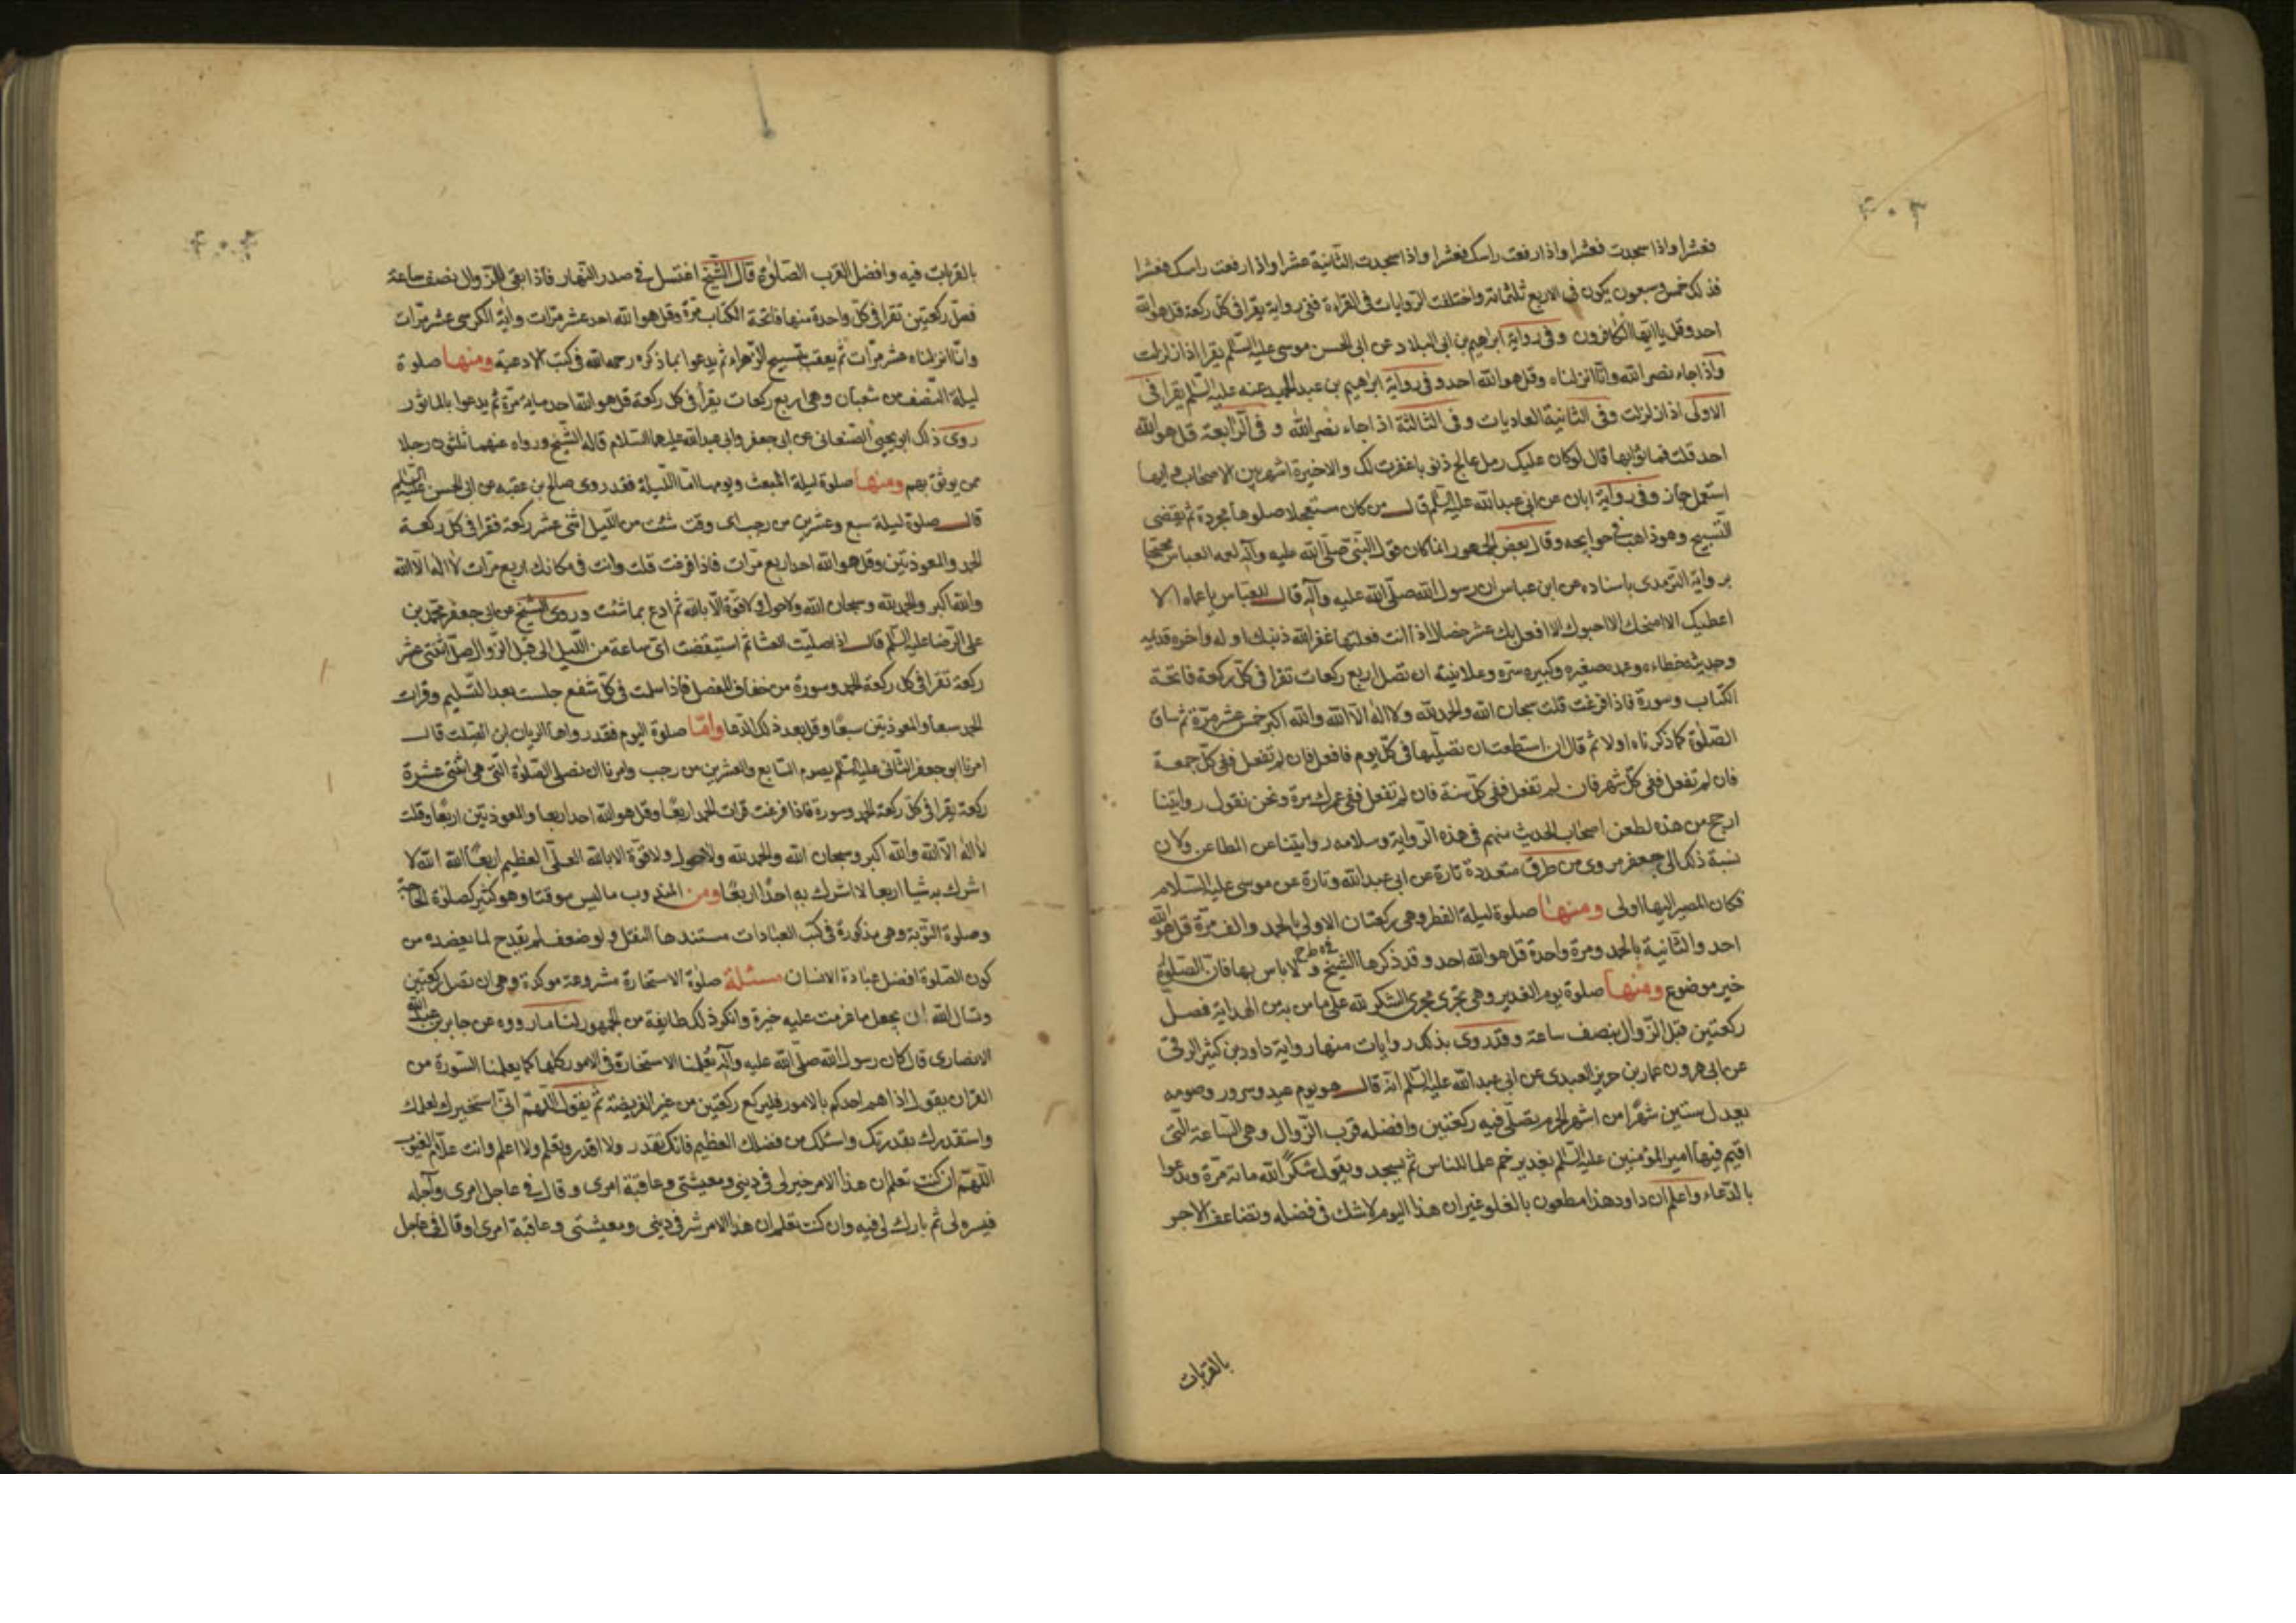 ۴۰۳
فعشرا واذا سجدت فعشرا واذا رفعت راسك فعشرا واذا سجدت الثانية عشرا واذا رفعت راسك فعشرا
فذلك خمس وسبعون يكون فى الاربع ثلثمائة واختلفت الروايات فى القراءة ففى رواية يقرا فى كل ركعة قل هو الله
احد وقل يا ايها الكافرون وفى رواية ابراهيم بن ابى البلاد عن ابى الحسن موسى عليه السلم يقرا اذا زلزلت
واذا جاء نصر الله وانا انزلناه وقل هو الله احد وفى رواية ابراهيم بن عبد الحميد عنه عليه السلم يقرا فى
الاولى اذا زلزلت وفى الثانية العاديات وفى الثالثة اذا جاء نصر الله وفى الرابعة قل هو الله
احد قلت فما ثوابها قال لو كان عليك رمل عالج ذنوبا غفرت لك والاخيرة اشهر بين الاصحاب وايها
استعمل جاز وفى رواية ابان عن ابى عبد الله عليه السلم قال من كان مستعجلا صلوها مجردة ثم يقضى
التسبيح وهو ذاهب فى حوايجه وقال بعض الجمهور انما كان قول النبى صلى الله عليه وآله لعمه العباس محتجا
برواية الترمدى باسناده عن ابن عباس ان رسول الله صلى الله عليه وآله قال للعباس يا عماه الا
اعطيك الا امنحك الا احبوك الا افعل بك عشر خصال اذا انت فعلتها غفر الله ذنبك اوله واخره قديمه
وحديثه خطاءه وعمده صغيره وكبيره سره وعلانيته ان تصل اربع ركعات تقرا فى كل ركعة فاتحة
الكتاب وسورة فاذا فرغت قلت سبحان الله والحمد لله ولا اله الا الله والله اكبر خمس عشر مرة ثم ساق
الصلوة كما ذكرناه اولا ثم قال ان استطعت ان تصليها فى كل يوم فافعل فان لم تفعل ففى كل جمعة
فان لم تفعل ففى كل شهر فان لم تفعل ففى كل سنة فان لم تفعل ففى عمرك مرة ونحن نقول روايتنا
ارجح من هذه لطعن اصحاب الحديث منهم فى هذه الرواية وسلامه روايتنا عن المطاعن ولان
نسبة ذلك الى جعفر مروى من طرق متعددة تارة عن ابى عبد الله وتارة عن موسى عليه السلام
فكان المصير اليها اولى ومنها صلوة ليلة الفطر وهى ركعتان الاولى بالحمد والف مرة قل هو الله
احد والثانية بالحمد ومرة واحدة قل هو الله احد وقد ذكرها الشيخ ولا باس بها فان الصلوة
خير موضوع ومنها صلوة يوم الغدير وهى تجرى مجرى الشكر لله على ما من به من الهداية فصل
ركعتين قبل الزوال بنصف ساعة وقد روى بذلك روايات منها رواية داود بن كثير الرقى
عن ابى هرون عمار بن حريز العبدى عن ابى عبد الله عليه السلم انه قال هو يوم عيد وسرور وصومه
يعدل ستين شهرا من اشهر الحرم يصلى فيه ركعتين وافضله قرب الزوال وهى الساعة التى
اقيم فيها امير المؤمنين عليه السلم بغدير خم علما للناس ثم يسجد ويقول شكرا لله مائة مرة ويدعوا
بالدعاء واعلم ان داود هذا مطعون بالغلو غير ان هذا اليوم لا شك فى فضله وتضاعف الاجر
بالقربات
۴۰۴
بالقربات فيه وافضل القرب الصلوة قال الشيخ اغتسل فى صدر النهار فاذا بقى للزوال نصف ساعة
فصل ركعتين تقرا فى كل واحدة منها فاتحة الكتاب مرة وقل هو الله احد عشر مرات واية الكرسى عشر مرات
وانا انزلناه عشر مرات ثم يعقب بتسبيح الزهراء ثم يدعوا بما ذكره رحمه الله فى كتب الادعية ومنها صلوة
ليلة النصف من شعبان وهى اربع ركعات يقرأ فى كل ركعة قل هو الله احد مايه مرة ثم يدعوا بالماثور
روى ذلك ابو يحيى الصنعانى عن ابى جعفر وابى عبد الله عليهما السلام قاله الشيخ ورواه عنهما ثلثون رجلا
ممن يوثق بهم ومنها صلوة ليلة المبعث ويومها اما الليلة فقد روى صالح بن عقبه عن ابى الحسن عليه السلم
قال صلوة ليلة سبع وعشرين من رجب اى وقت شئت من الليل اثنى عشر ركعة فقرا فى كل ركعة
الحمد والمعوذتين وقل هو الله احد اربع مرات فاذا فرغت قلت وانت فى مكانك اربع مرات لا اله الا الله
والله اكبر والحمد لله وسبحان الله ولا حول ولا قوة الا بالله ثم ادع بما شئت وروى الشيخ عن ابى جعفر محمد بن
على الرضا عليه السلم قال اذا صليت العشا ثم استيقضت اى ساعة من الليل الى قبل الزوال صل اثنتى عشر
ركعة تقرا فى كل ركعة الحمد وسورة من خفاف المفصل فاذا سلمت فى كل شفع جلست بعد التسليم وقرات
الحمد سبعا والمعوذتين سبعا وقل بعد ذلك الدعا واما صلوة اليوم فقد رواها الريان ابن الصلت قال
امرنا ابو جعفر الثانى عليه السلم بصوم السابع والعشرين من رجب وامرنا ان نصلى الصلوة التى هى اثنتى عشرة
ركعة يقرا فى كل ركعة الحمد وسورة فاذا فرغت قرات الحمد اربعا وقل هو الله احد اربعا والمعوذتين اربعا وقلت
لا اله الا الله والله اكبر وسبحان الله والحمد لله ولا حول ولا قوة الا بالله العلى العظيم اربعا الله الله لا
اشرك به شيا اربعا لا اشرك به احدا اربعا ومن المندوب ما ليس موقتا وهو كثير كصلوة الحاجة
وصلوة التوبة وهى مذكورة فى كتب العبادات مستندها النقل ولو ضعف لم يقدح لما يعضده من
كون الصلوة افضل عبادة الانسان مسئلة صلوة الاستخارة مشروعة موكدة وهى ان تصل ركعتين
وتسال الله ان يجعل ما عزمت عليه خيرة وانكر ذلك طايفة من الجمهور لنا ما رووه عن جابر بن عبد الله
الانصارى قال كان رسول الله صلى الله عليه وآله يعلمنا الاستخارة فى الامور كلها كما يعلمنا السورة من
القران يقول اذا هم احدكم بالامور فليركع ركعتين من غير الفريضة ثم يقول اللهم انى استخيرك بعلمك
واستقدرك بقدرتك واسئلك من فضلك العظيم فانك تقدر ولا اقدر وتعلم ولا اعلم وانت علام الغيوب
اللهم ان كنت تعلم ان هذا الامر خير لى فى دينى ومعيشتى وعاقبة امرى وقال فى عاجل امرى وآجله
فيسره لى ثم بارك لى فيه وان كنت تعلم ان هذا الامر شر فى دينى ومعيشتى وعاقبة امرى او قال فى عاجل